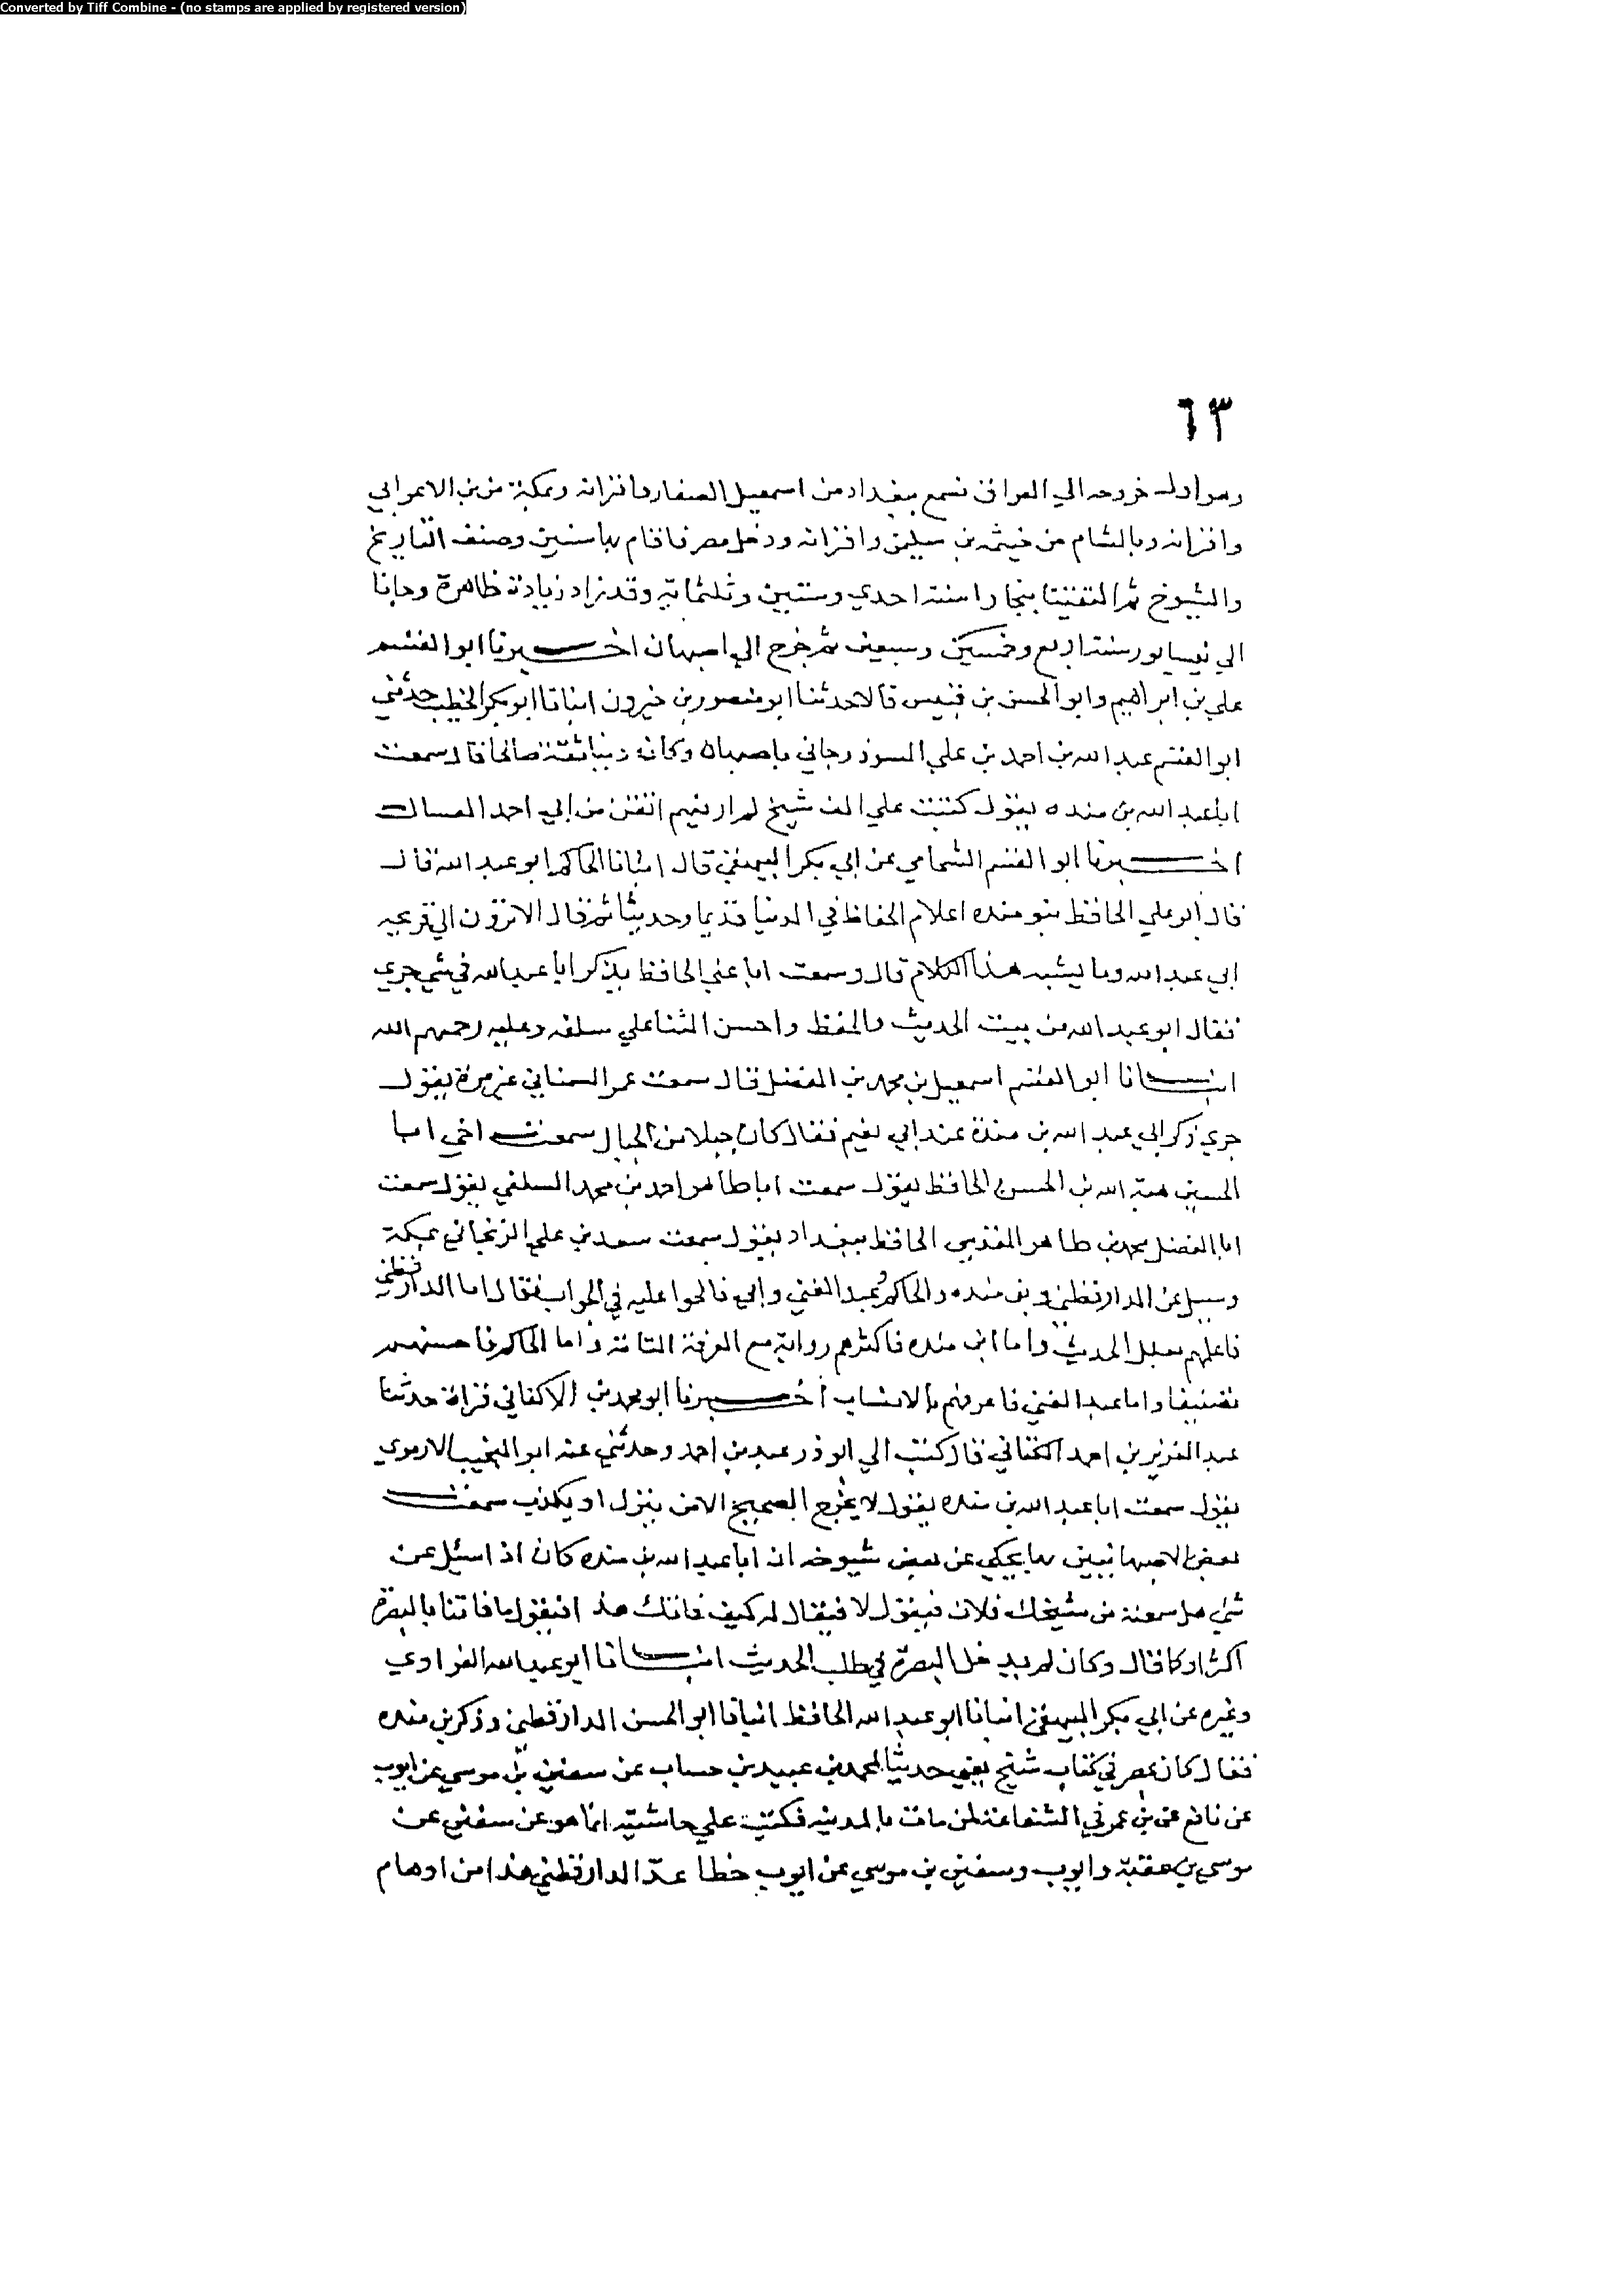 Converted by Tiff Combine - (no stamps are applied by registered version)
٦٣
وهو اول خروجه الي العراق فسمع ببغداد من اسمعيل الصفار واقرانه وبمكة من بن الاعرابي
واقرانه وبالشام من خيثمة بن سليمن واقرانه ودخل مصر فاقام بها سنين وصنف التاريخ
والشيوخ ثم التقينا ببخارا سنة احدي وستين وثلثماية وقد زاد زيادة ظاهرة وجانا
الي نيسابور سنة اربع وخمسين وسبعين ثم خرج الي اصبهان اخبرنا ابو القسم
علي بن ابراهيم وابو الحسن بن قبيس قالا حدثنا ابو منصور بن خيرون انبانا ابو بكر الخطيب حدثني
ابو القسم عبد الله بن احمد بن علي السوذرجاني باصبهان وكان دينا ثقة صالحا قال سمعت
ابا عبد الله بن منده يقول كتبت علي الف شيخ لم ار فيهم اتقن من ابي احمد العسال
اخبرنا ابو القسم الشحامي عن ابي بكر البيهقي قال انبانا الحاكم ابو عبد الله قال
قال ابو علي الحافظ بنو منده اعلام الحفاظ في الدنيا قديما وحديثا ثم قال الا ترون الي قريحه
ابي عبد الله وما يشبه هذا الكلام قال وسمعت ابا علي الحافظ يذكر ابا عبد الله في شي جري
فقال ابو عبد الله من بيت الحديث والحفظ واحسن الثنا علي سلفه وعليه رحمهم الله
انبانا ابو القسم اسمعيل بن محمد بن الفضل قال سمعت عمر السمناني غير مرة يقول
جري ذكر ابي عبد الله بن مندة عند ابي نعيم فقال كان جبلا من الجبال سمعت اخي ابا
الحسين هبة الله بن الحسن الحافظ يقول سمعت ابا طاهر احمد بن محمد السلفي يقول سمعت
ابا الفضل محمد بن طاهر المقدسي الحافظ ببغداد يقول سمعت سعد بن علي الزنجاني بمكة
وسيل عن الدارقطني وبن منده والحاكم وعبد الغني وابي فالحوا عليه في الجواب فقال اما الدارقطني
فاعلمهم بعلل الحديث واما ابن منده فاكثرهم رواية مع المعرفة التامة واما الحاكم فاحسنهم
تصنيفا واما عبد الغني فاعرفهم بالانساب اخبرنا ابو محمد بن الاكفاني قراة حدثنا
عبد العزيز بن احمد الكتاني قال كتب الي ابو ذر عبد بن احمد وحدثني عنه ابو النجيب الارموي
يقول سمعت ابا عبد الله بن منده يقول لا يخرج الصحيح الا من ينزل او يكذب سمعت
بعض الاصبهانيين بها يحكي عن بعض شيوخه ان ابا عبد الله بن منده كان اذا سئل عن
شي هل سمعته من شيخك فلان فيقول لا فيقال له كيف فاتك هذا فيقول ما فاتنا بالبصرة
اكثر او كما قال وكان لم يدخل البصرة في طلب الحديث انبانا ابو عبد الله الفراوي
وغيره عن ابي بكر البيهقي انبانا ابو عبد الله الحافظ انبانا ابو الحسن الدارقطني وذكر بن منده
فقال كان بمصر في كتاب شيخ يعني حديثا لمحمد بن عبيد بن حساب عن سفين بن موسي عن ايوب
عن نافع عن بن عمر في الشفاعة لمن مات بالمدينه فكتب علي حاشيته انما هو عن سفين عن
موسي بن عقبة وايوب وسفين بن موسي عن ايوب خطا عد الدارقطني هذا من اوهام